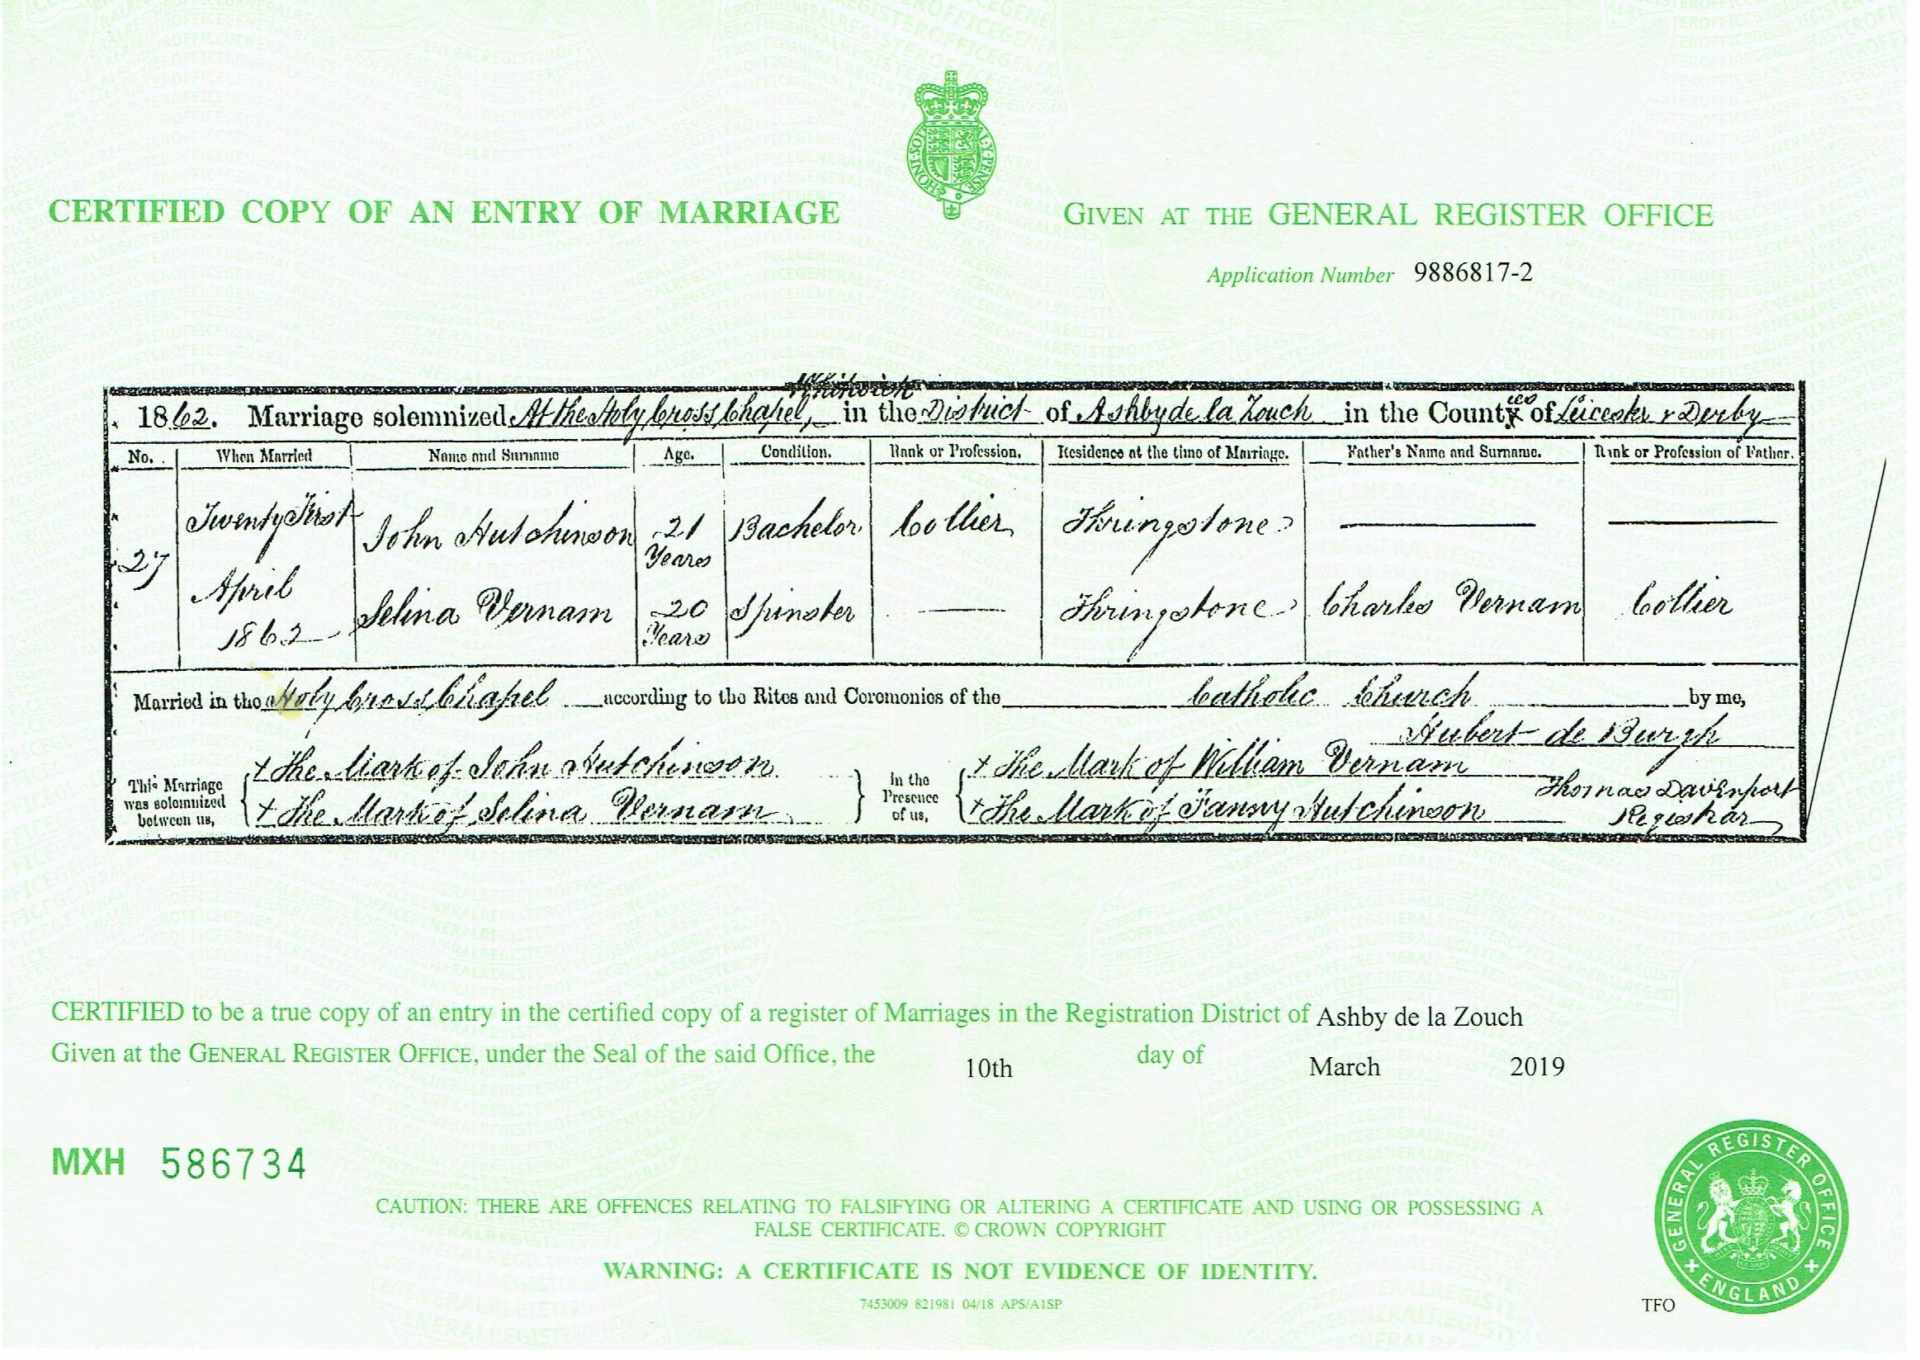 CERTIFIED COPY OF AN ENTRY OF MARRIAGE
GIVEN AT THE GENERAL REGISTER OFFICE
Application Number 9886817-2
Whitwick
1862. Marriage solemnized At the Holy Cross Chapel, in the District of Ashby de la Zouch in the Counties of Leicester & Derby
No. When Married Name and Surname Age. Condition. Rank or Profession. Residence at the time of Marriage. Father's Name and Surname. Rank or Profession of Father.
27 Twenty First April 1862 John Hutchinson 21 Years Bachelor Collier Thringstone
Selina Vernam 20 Years Spinster Thringstone Charles Vernam Collier
Married in the Holy Cross Chapel according to the Rites and Ceremonies of the Catholic Church by me,
Hubert de Burgh
This Marriage was solemnized between us, X The Mark of John Hutchinson In the Presence of us, X The Mark of William Vernam Thomas Davenport
X The Mark of Selina Vernam X The Mark of Fanny Hutchinson Registrar
CERTIFIED to be a true copy of an entry in the certified copy of a register of Marriages in the Registration District of Ashby de la Zouch
Given at the GENERAL REGISTER OFFICE, under the Seal of the said Office, the 10th day of March 2019
MXH 586734
CAUTION: THERE ARE OFFENCES RELATING TO FALSIFYING OR ALTERING A CERTIFICATE AND USING OR POSSESSING A
FALSE CERTIFICATE. © CROWN COPYRIGHT
WARNING: A CERTIFICATE IS NOT EVIDENCE OF IDENTITY.
7453009 821981 04/18 APS/A1SP
TFO
GENERAL REGISTER OFFICE
ENGLAND